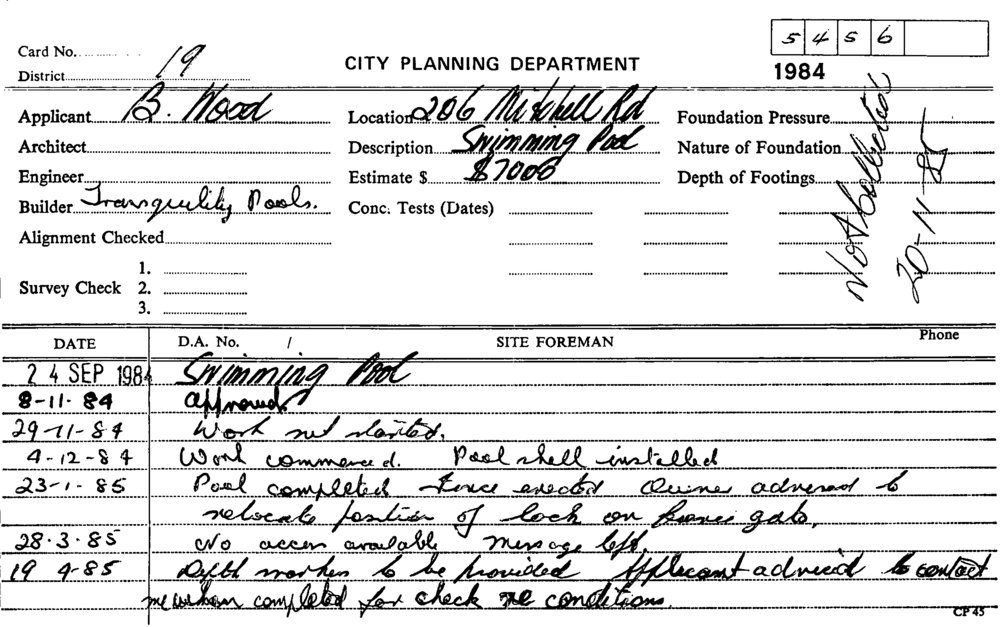 5 4 5 6
Card No.
District 19
CITY PLANNING DEPARTMENT
1984
Applicant B. Wood
Location 206 Mitchell Rd
Foundation Pressure
Architect
Description Swimming Pool
Nature of Foundation
Engineer
Estimate $ $7000
Depth of Footings
Builder Tranquility Pools.
Conc. Tests (Dates)
Not Collected
20-11-85
Alignment Checked
1.
Survey Check 2.
3.
DATE D.A. No. / SITE FOREMAN Phone
24 SEP 1984 Swimming Pool
8-11-84 approved
29-11-84 Work not started.
4-12-84 Work commenced. Pool shell installed
23-1-85 Pool completed Fence erected Owner advised to
relocate position of lock on fence gate.
28.3.85 No access available Message left.
19 4-85 Depth marker to be provided Applicant advised to contact
me when completed for check re conditions.
CP 45